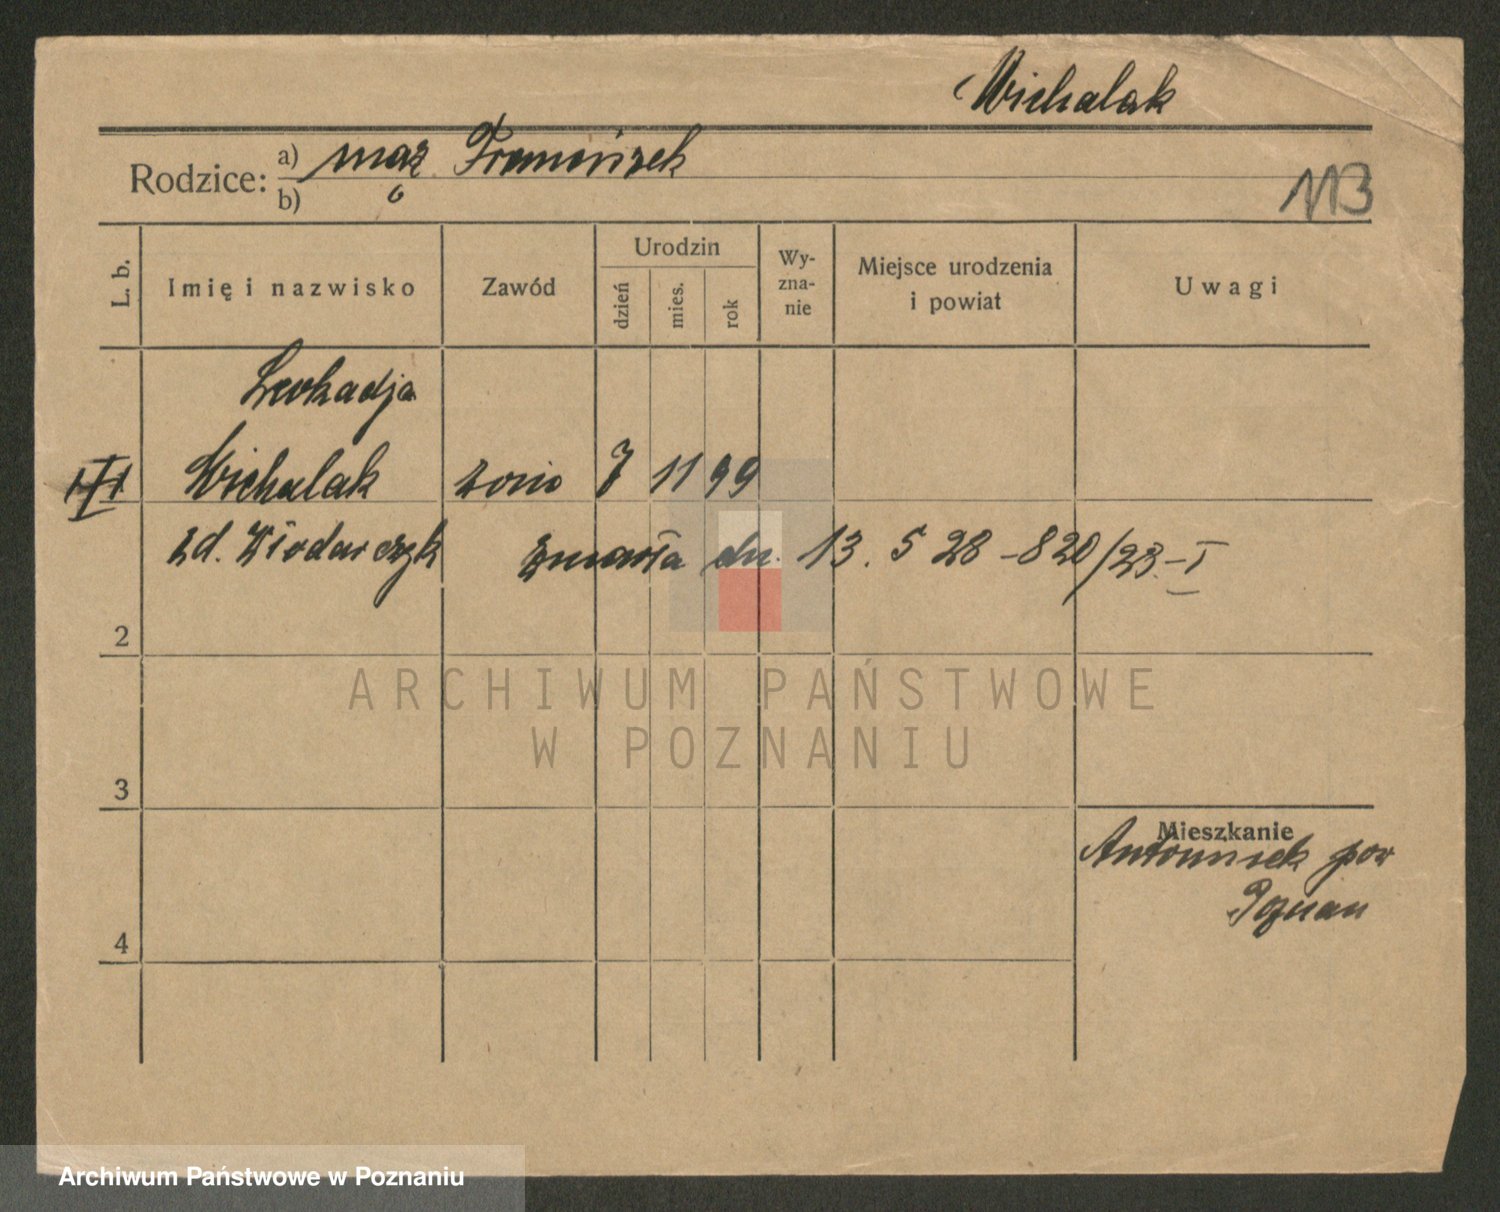 Michalak
Rodzice: a) mąż Franciszek
b)
113
L. b. Imię i nazwisko Zawód Urodzin dzień mies. rok Wyznanie Miejsce urodzenia i powiat Uwagi
Leokadja
Michalak żona 7 11 99
zd. Włodarczyk zmarła dn. 13. 5 28 - 820/28 - I
2
ARCHIWUM PAŃSTWOWE
W POZNANIU
3
Mieszkanie
Antoninek pow
Poznan
4
Archiwum Państwowe w Poznaniu